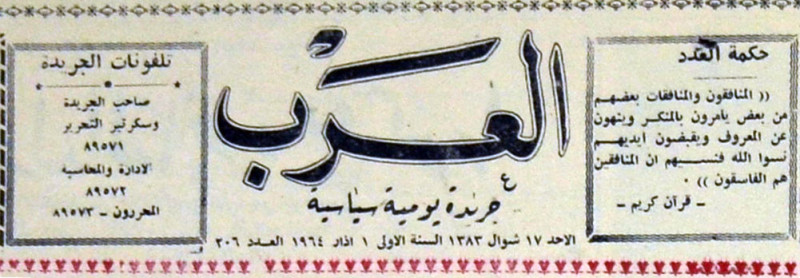 حكمة العدد
(( المنافقون والمنافقات بعضهم
من بعض يأمرون بالمنكر وينهون
عن المعروف ويقبضون ايديهم
نسوا الله فنسيهم ان المنافقين
هم الفاسقون )) .
ـ قرآن كريم ـ
العرب
جريدة يومية سياسية
الاحد ١٧ شوال ١٣٨٣ السنة الاولى ١ اذار ١٩٦٤ العدد ٢٠٦
تلفونات الجريدة
صاحب الجريدة
وسكرتير التحرير
٨٩٥٧١
الادارة والمحاسبة
٨٩٥٧٢
المحررون ـ ٨٩٥٧٣